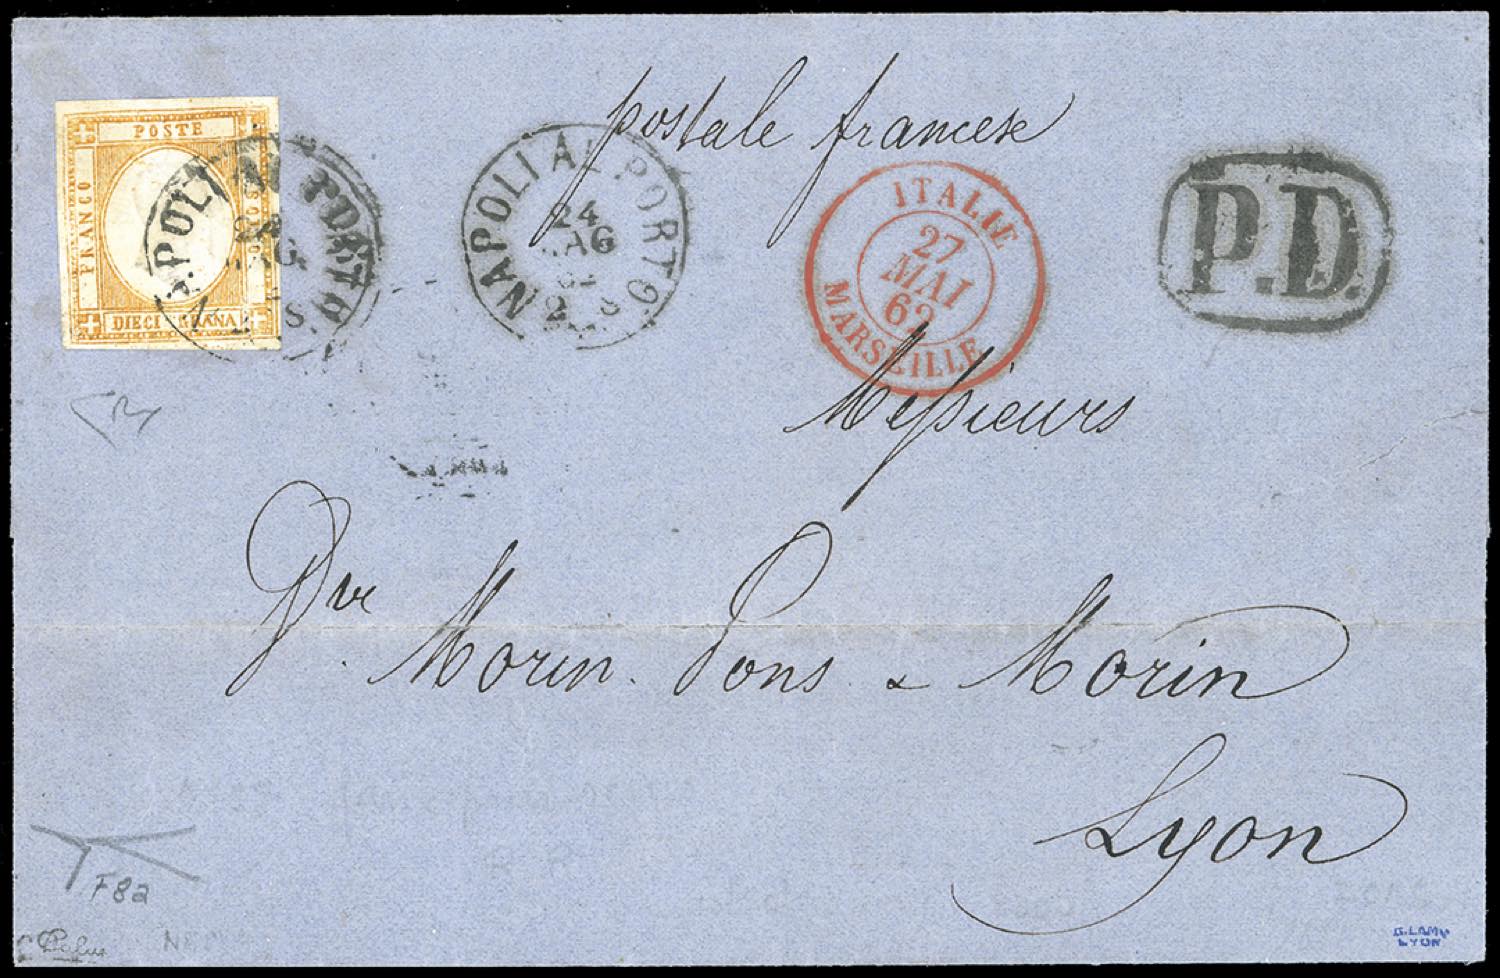 postale francese
POSTE
FRANCO
BOLLO
DIECI GRANA
NAPOLI AL PORTO
24
MAG
62
2 S
ITALIE
27
MAI
62
MARSEILLE
P.D.
Messieurs
Vve Morin. Pons & Morin
Lyon
F82
G. LAMY
LYON